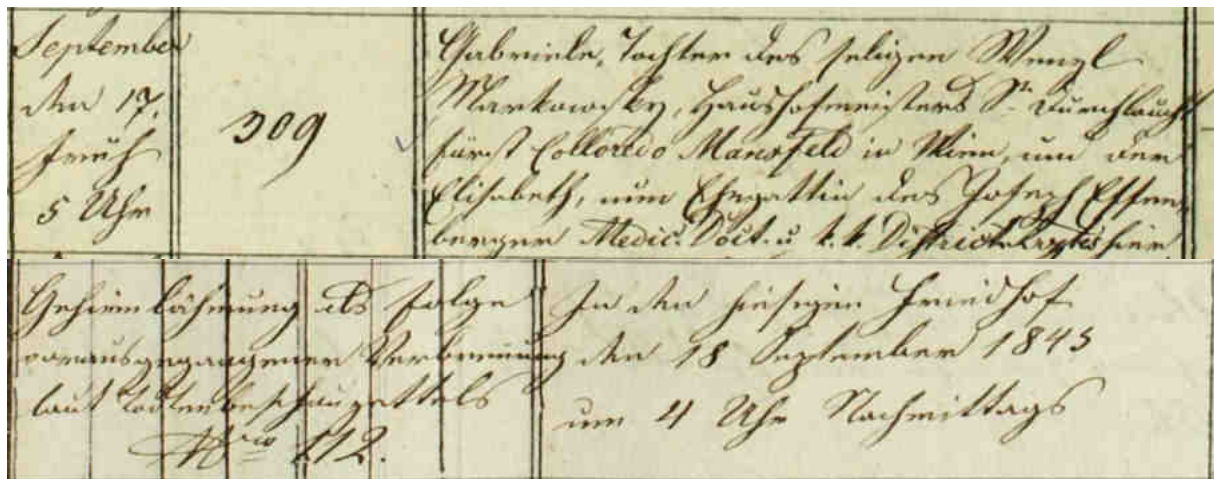 September
den 17.
Früh
5 Uhr
309
Gabriele, Tochter des seligen Wenzl
Markowsky, Haushofmeisters Sr. Durchlaucht
Fürst Colloredo Mansfeld in Wien, und der
Elisabeth, nun Ehegattin des Joseph Effen-
berger Medic. Doct. u k. k. Districts Arztes hier
Gehirnlähmung als Folge
vorausgegangener Verbrennung
laut Todtenbeschauzettels
Nro 112.
In den hiesigen Friedhof
den 18 September 1845
um 4 Uhr Nachmittags